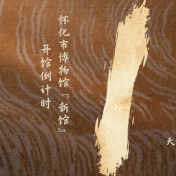 怀化市博物馆『新馆』
开馆倒计时
1
天